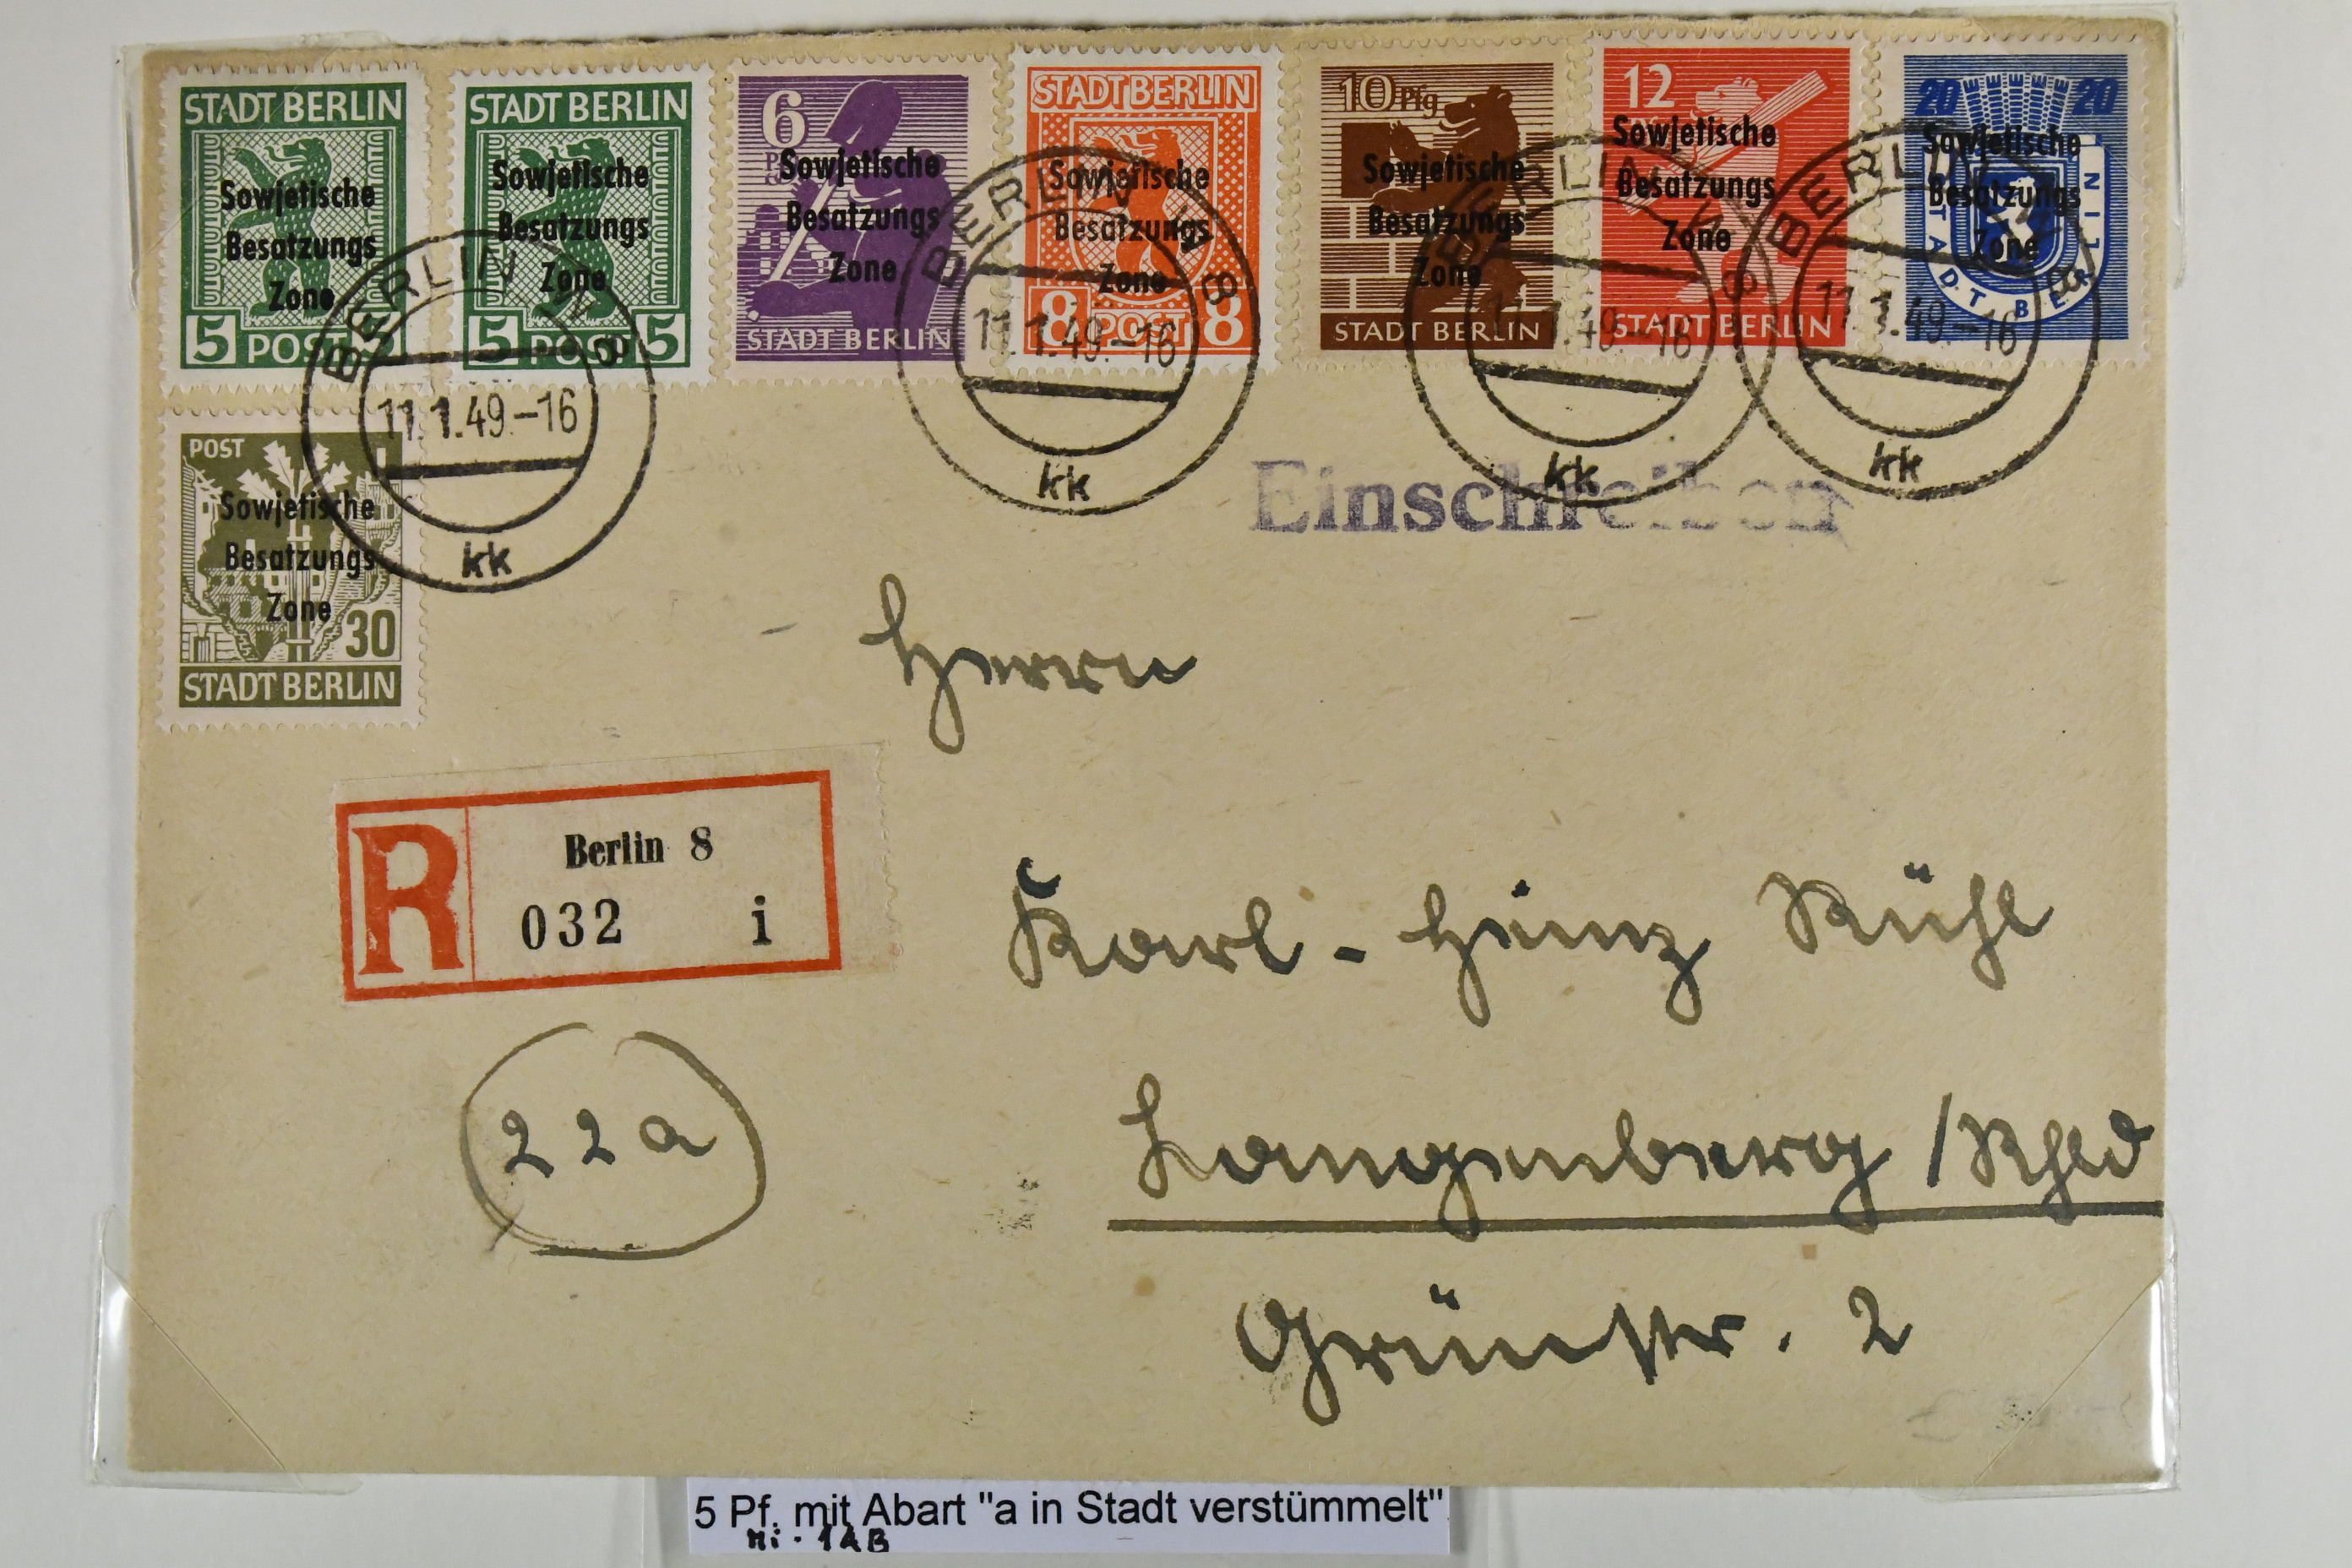 STADT BERLIN
Sowjetische
Besatzungs
Zone
5 POST 5
STADT BERLIN
Sowjetische
Besatzungs
Zone
5 POST 5
6
Sowjetische
Besatzungs
Zone
STADT BERLIN
STADT BERLIN
Sowjetische
Besatzungs
Zone
8 POST 8
10 Pfg
Sowjetische
Besatzungs
Zone
STADT BERLIN
12
Sowjetische
Besatzungs
Zone
STADT BERLIN
20 20
Sowjetische
Besatzungs
Zone
STADT BERLIN
BERLIN W 8
11.1.49.-16
kk
BERLIN W 8
11.1.49.-16
kk
BERLIN W 8
11.1.49.-16
kk
BERLIN W 8
11.1.49.-16
kk
POST
Sowjetische
Besatzungs
Zone
30
STADT BERLIN
Einschreiben
Herrn
R
Berlin 8
032 i
Karl-Heinz Rühl
22a
Langenberg/Rhld
Grünstr. 2
5 Pf. mit Abart "a in Stadt verstümmelt"
Mi. 1AB